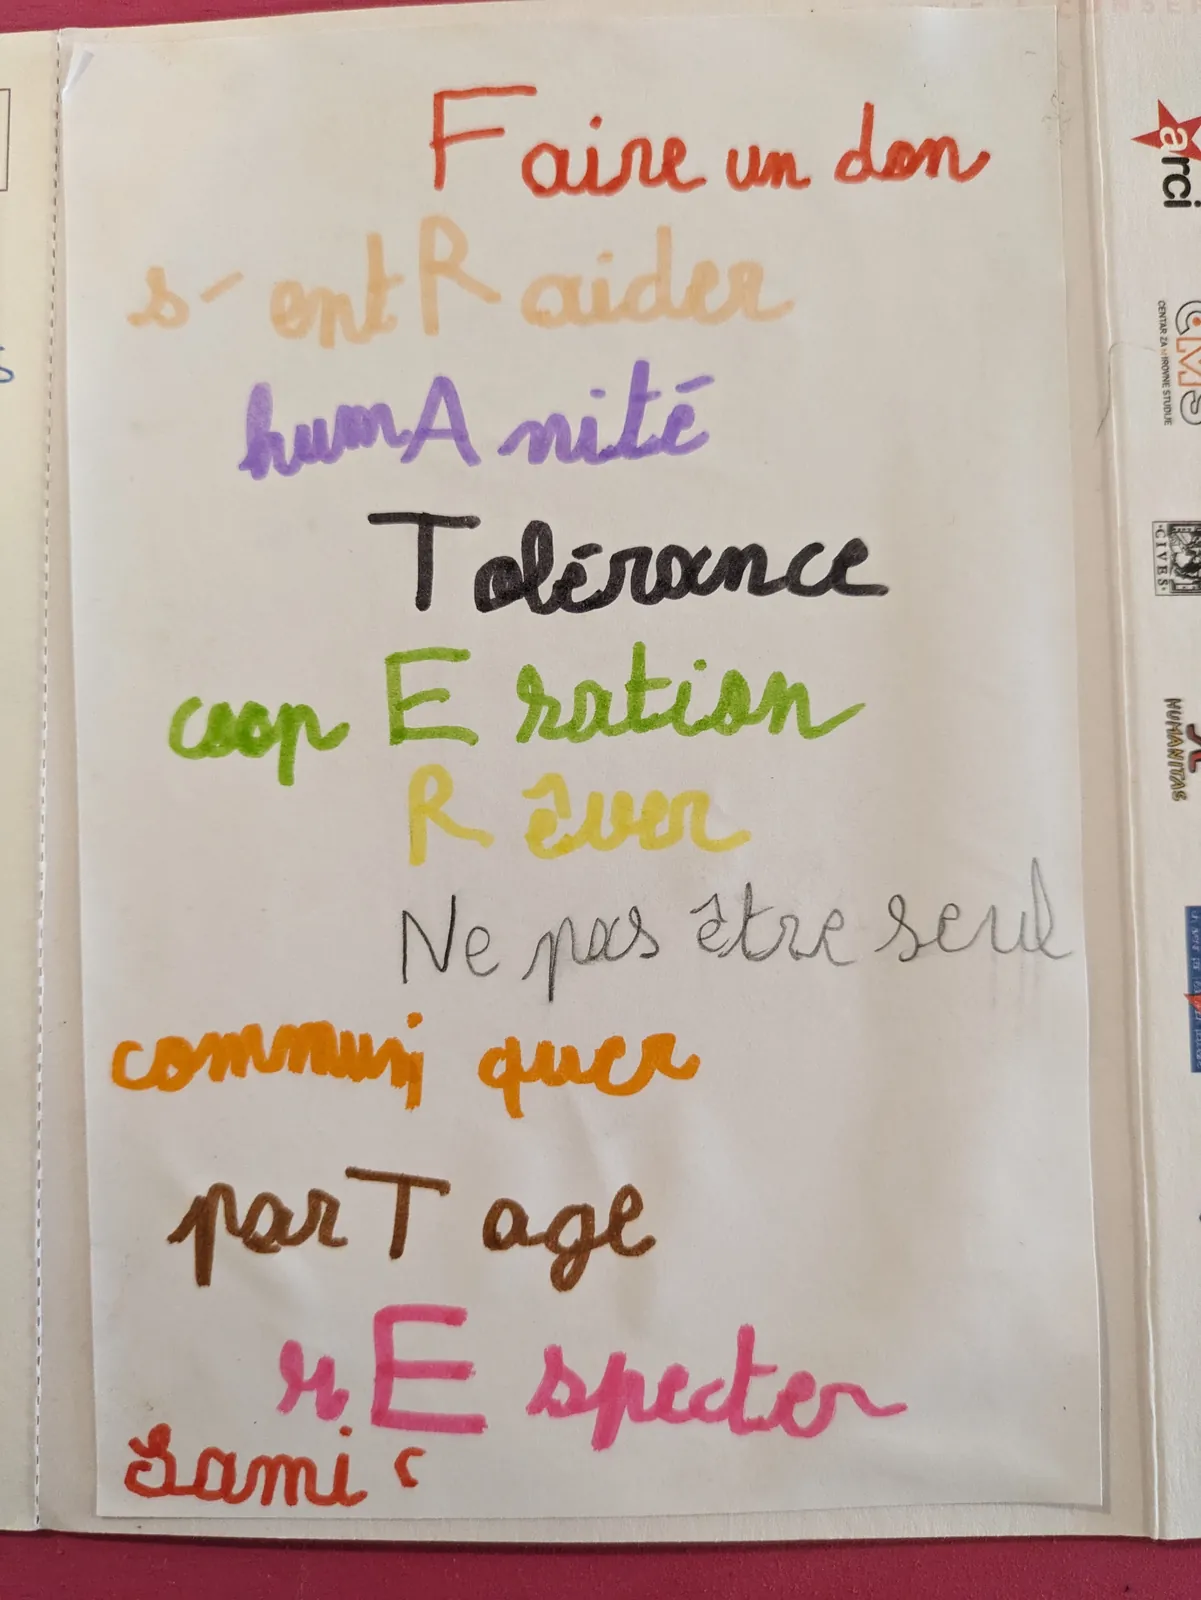 Faire un don
s'entRaider
humAnité
Tolérance
coopEration
Rêver
Ne pas être seul
communiquer
parTage
rEspecter
Sami
arci
CMS
CENTAR ZA MIROVNE STUDIJE
CIVES
HUMANITAS